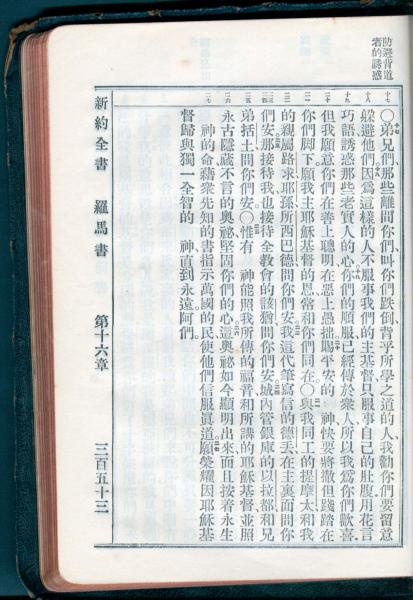 防避背道
者的誘惑
〇弟兄們、那些離間你們、叫你們跌倒、背乎所學之道的人、我勸你們要留意
躱避他們因爲這樣的人不服事我們的主基督只服事自己的肚腹用花言
巧語誘惑那些老實人的心你們的順服已經傳於衆人所以我爲你們歡喜
但我願意你們在善上聰明在惡上愚拙賜平安的　神快要將撒但踐踏在
你們脚下願我主耶穌基督的恩常和你們同在〇與我同工的提摩太和我
的親屬路求耶孫所西巴德問你們安我這代筆寫信的德丟在主裏面問你
們安那接待我也接待全教會的該猶問你們安城內管銀庫的以拉都和兄
弟括土問你們安〇惟有　神能照我所傳的福音和所講的耶穌基督並照
永古隱藏不言的奧祕堅固你們的心這奧祕如今顯明出來而且按着永生
神的命藉衆先知的書指示萬國的民使他們信服眞道願榮耀因耶穌基
督歸與獨一全智的　神直到永遠阿們
新約全書　羅馬書　第十六章　三百五十三